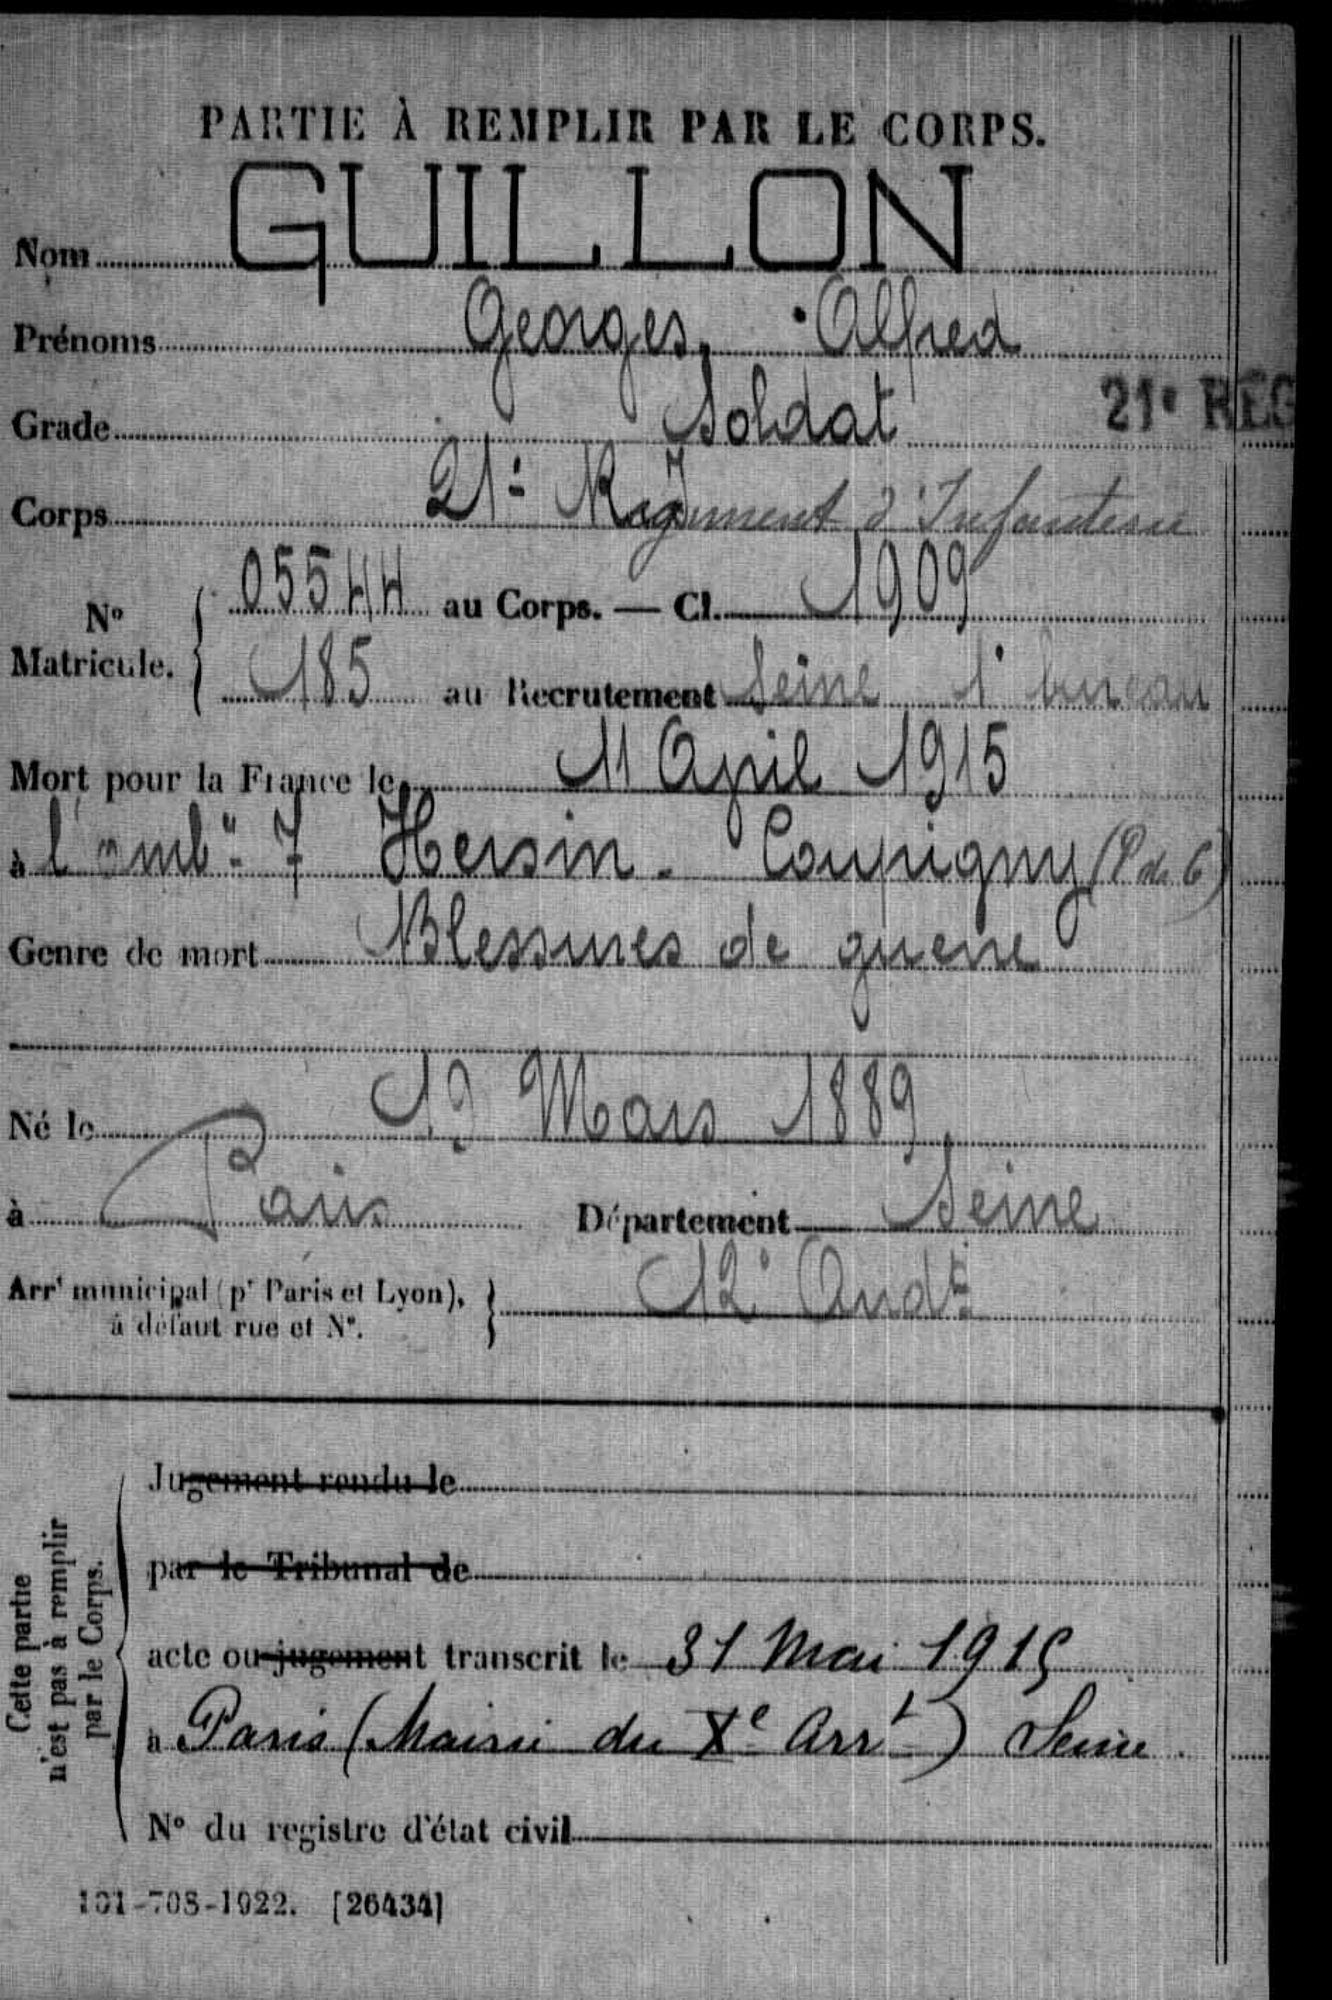 PARTIE À REMPLIR PAR LE CORPS.
Nom GUILLON
Prénoms Georges, Alfred
Grade Soldat
21e RÉG
Corps 21e Régiment d'Infanterie
No Matricule. 05544 au Corps. — Cl. 1909
185 au Recrutement Seine 1r bureau
Mort pour la France le 11 Avril 1915
à l'amb" 7 Hersin-Coupigny (P de C)
Genre de mort Blessures de guerre
Né le 19 Mars 1889
à Paris Département Seine
Arrt municipal (pr Paris et Lyon), à défaut rue et No. 12e Arrdt
Cette partie n'est pas à remplir par le Corps.
Jugement rendu le
par le Tribunal de
acte ou jugement transcrit le 31 Mai 1915
à Paris (Mairie du Xe Arrt) Seine.
No du registre d'état civil
101-708-1922. [26434]